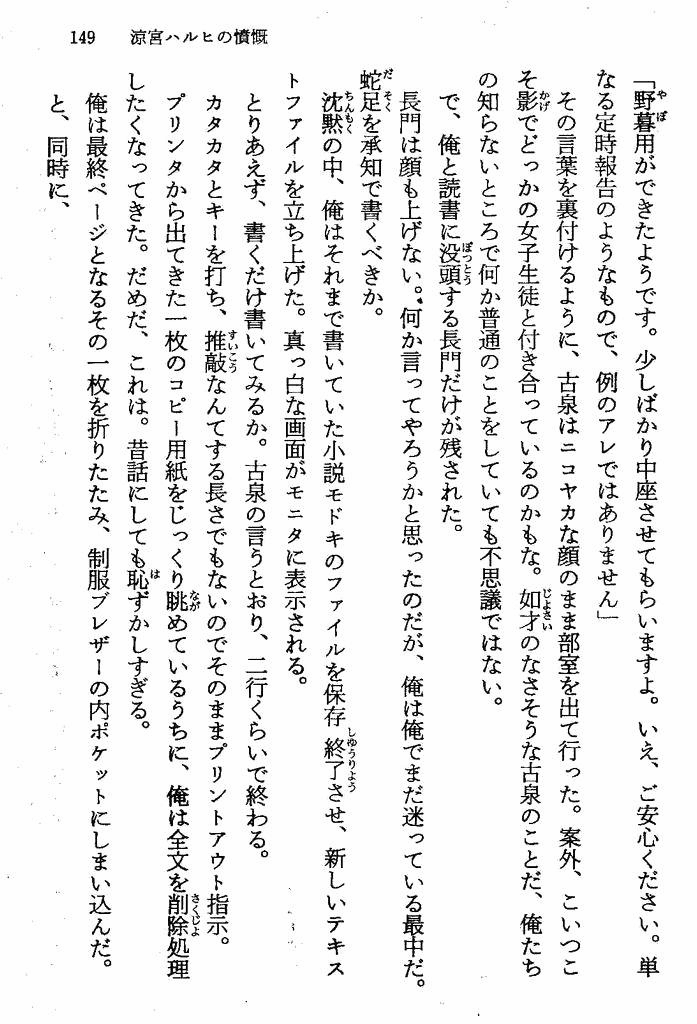 149　涼宮ハルヒの憤慨
「野暮用ができたようです。少しばかり中座させてもらいますよ。いえ、ご安心ください。単
なる定時報告のようなもので、例のアレではありません」
その言葉を裏付けるように、古泉はニコヤカな顔のまま部室を出て行った。案外、こいつこ
そ影でどっかの女子生徒と付き合っているのかもな。如才のなさそうな古泉のことだ、俺たち
の知らないところで何か普通のことをしていても不思議ではない。
で、俺と読書に没頭する長門だけが残された。
長門は顔も上げない。何か言ってやろうかと思ったのだが、俺は俺でまだ迷っている最中だ。
蛇足を承知で書くべきか。
沈黙の中、俺はそれまで書いていた小説モドキのファイルを保存終了させ、新しいテキス
トファイルを立ち上げた。真っ白な画面がモニタに表示される。
とりあえず、書くだけ書いてみるか。古泉の言うとおり、二行くらいで終わる。
カタカタとキーを打ち、推敲なんてする長さでもないのでそのままプリントアウト指示。
プリンタから出てきた一枚のコピー用紙をじっくり眺めているうちに、俺は全文を削除処理
したくなってきた。だめだ、これは。昔話にしても恥ずかしすぎる。
俺は最終ページとなるその一枚を折りたたみ、制服ブレザーの内ポケットにしまい込んだ。
と、同時に、